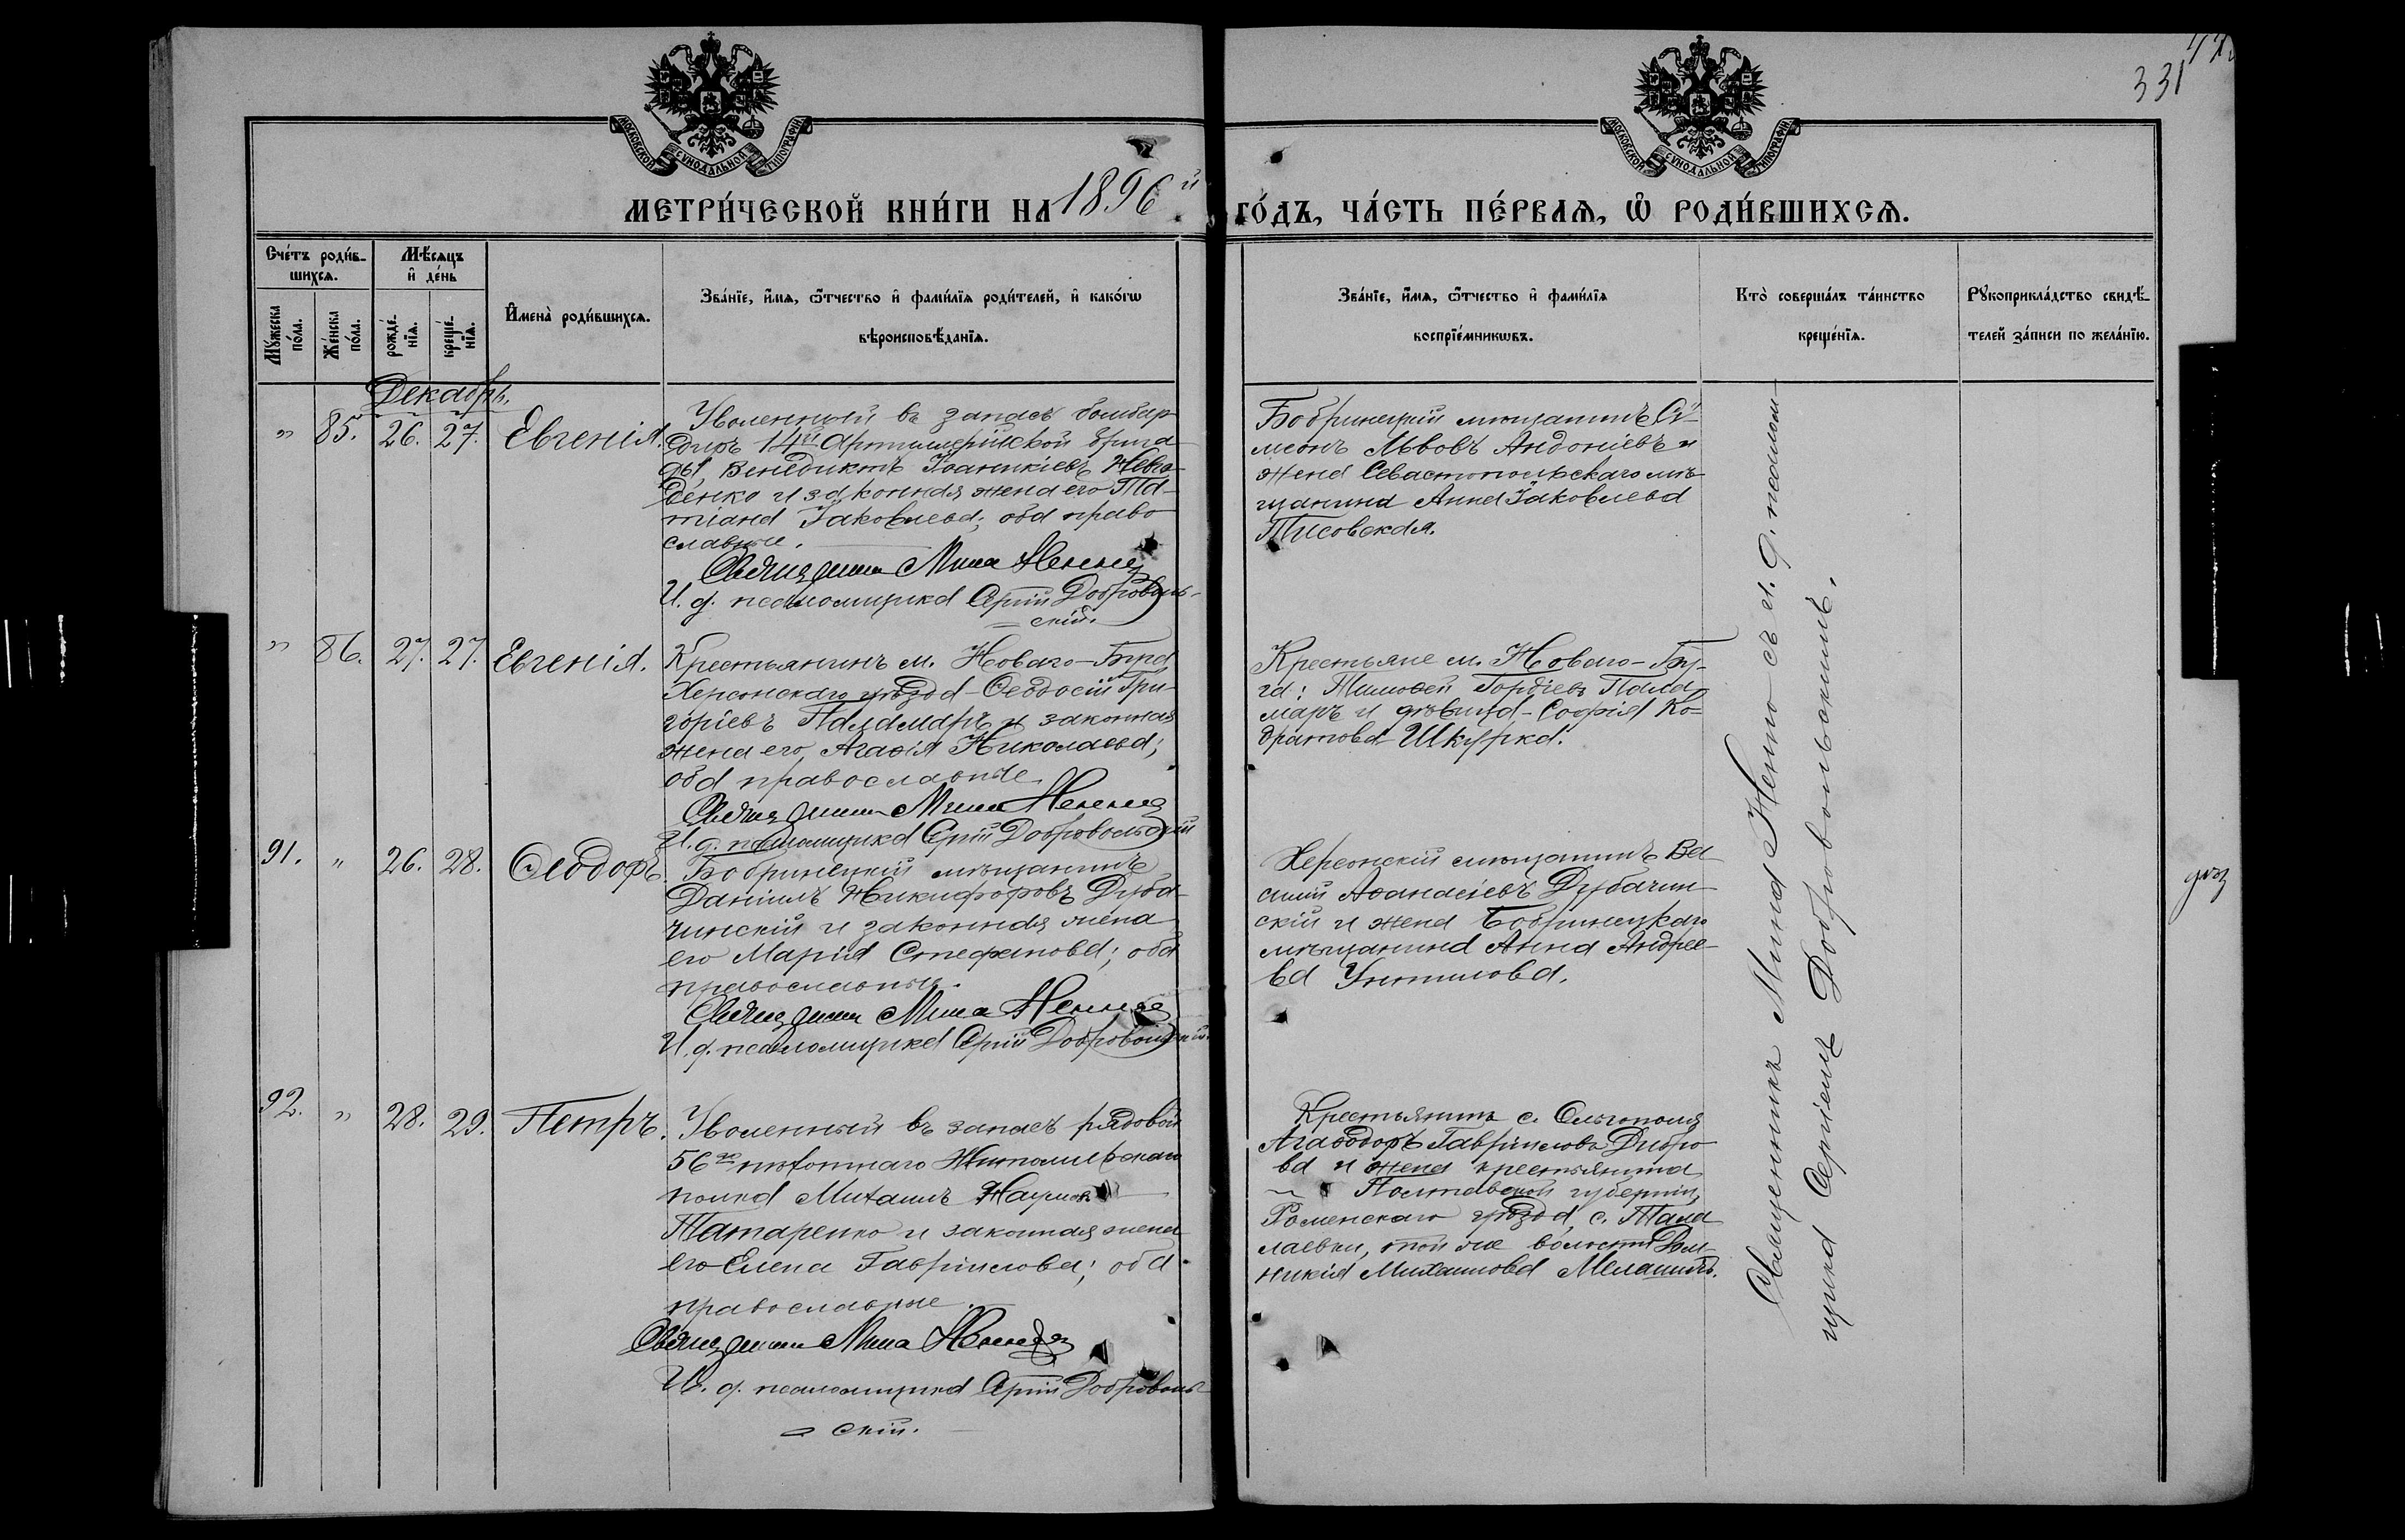 331
МОСКОВСКОЙ СУНОДАЛЬНОЙ ТИПОГРАФІИ
МОСКОВСКОЙ СУНОДАЛЬНОЙ ТИПОГРАФІИ
МЕТРИ́ЧЕСКОЙ КНИ́ГИ НА 1896 й го́дъ, ча́сть пе́рваѧ, ѽ роди́вшихсѧ.
Сче́тъ роди́в-
шихсѧ.
Мѣ́сѧцъ
и҆ де́нь
Мꙋ́жеска
по́ла.
Же́нска
по́ла.
рожде́-
нїѧ.
креще́-
нїѧ.
И҆мена̀ роди́вшихсѧ.
Зва́нїе, и҆́мѧ, ѻ҆́тчество и҆ фами́лїѧ роди́телей, и҆ како́гѡ
вѣроисповѣ́данїѧ.
Зва́нїе, и҆́мѧ, ѻ҆́тчество и҆ фами́лїѧ
воспрїе́мникѡвъ.
Кто̀ соверша́лъ та́инство
креще́нїѧ.
Рꙋкоприкла́дство свидѣ́-
телей за́писи по жела́нїю.
Декабрь.
" 85. 26. 27. Евгенія.
Уволенный въ запасъ бомбар-
диръ 14й Артиллерійской брига-
ды, Венедиктъ Іоанникіевъ
и законная жена его Та-
тіана Іаковлева; оба право
славные.
Священникъ Мина Ненно
И. д. псаломщика Сергій Доброволь-
скій.
Бобринецкій мѣщанинъ Си-
меонъ Львовъ Андоніевъ и
жена Севастопольскаго мѣ-
щанина Анна Іаковлева
Тисовская.
" 86. 27. 27. Евгенія.
Крестьянинъ м. Новаго-Буга
Херсонскаго уѣзда Ѳеодосій Гри-
горіевъ Паламаръ и законная
жена его Агаѳія Николаева;
оба православные
Священникъ Мина Ненно
И. д. псаломщика Сергій Добровольскій
Крестьяне м. Новаго-Бу-
га: Тимоѳей Гордіевъ Пала-
маръ и дѣвица София Ко-
дратова Шкурка.
91. " 26. 28. Ѳеодоръ.
Бобринецкій мѣщанинъ
Даніилъ Никифоровъ Дуба-
чинскій и законная жена
его Марія Стефанова; оба
православные.
Священникъ Мина Ненно
И. д. псаломщика Сергій Добровольскій.
Херсонскій мѣщанинъ Ва-
силій Аѳанасіевъ Дубачин-
скій и жена Бобринецкаго
мѣщанина Анна Андрее-
ва Унтилова.
92. " 28. 29. Петръ.
Уволенный въ запасъ рядовой
56го пѣхотнаго Житомирскаго
полка Михаилъ Наумовъ
Татаренко и законная жена
его Елена Гавріилова; оба
православные.
Священникъ Мина Ненно
И. д. псаломщика Сергій Доброволь-
скій.
Крестьянинъ с. Ольгополя
Агаѳодоръ Гавріиловъ Дибро-
ва и жена крестьянина
Полтавской губерніи,
Роменскаго уѣзда, с. Тала-
лаевки, той же волости
Михаилова
Священникъ Мина Ненно съ и. д. псалом-
щика Сергіемъ Добровольскимъ.